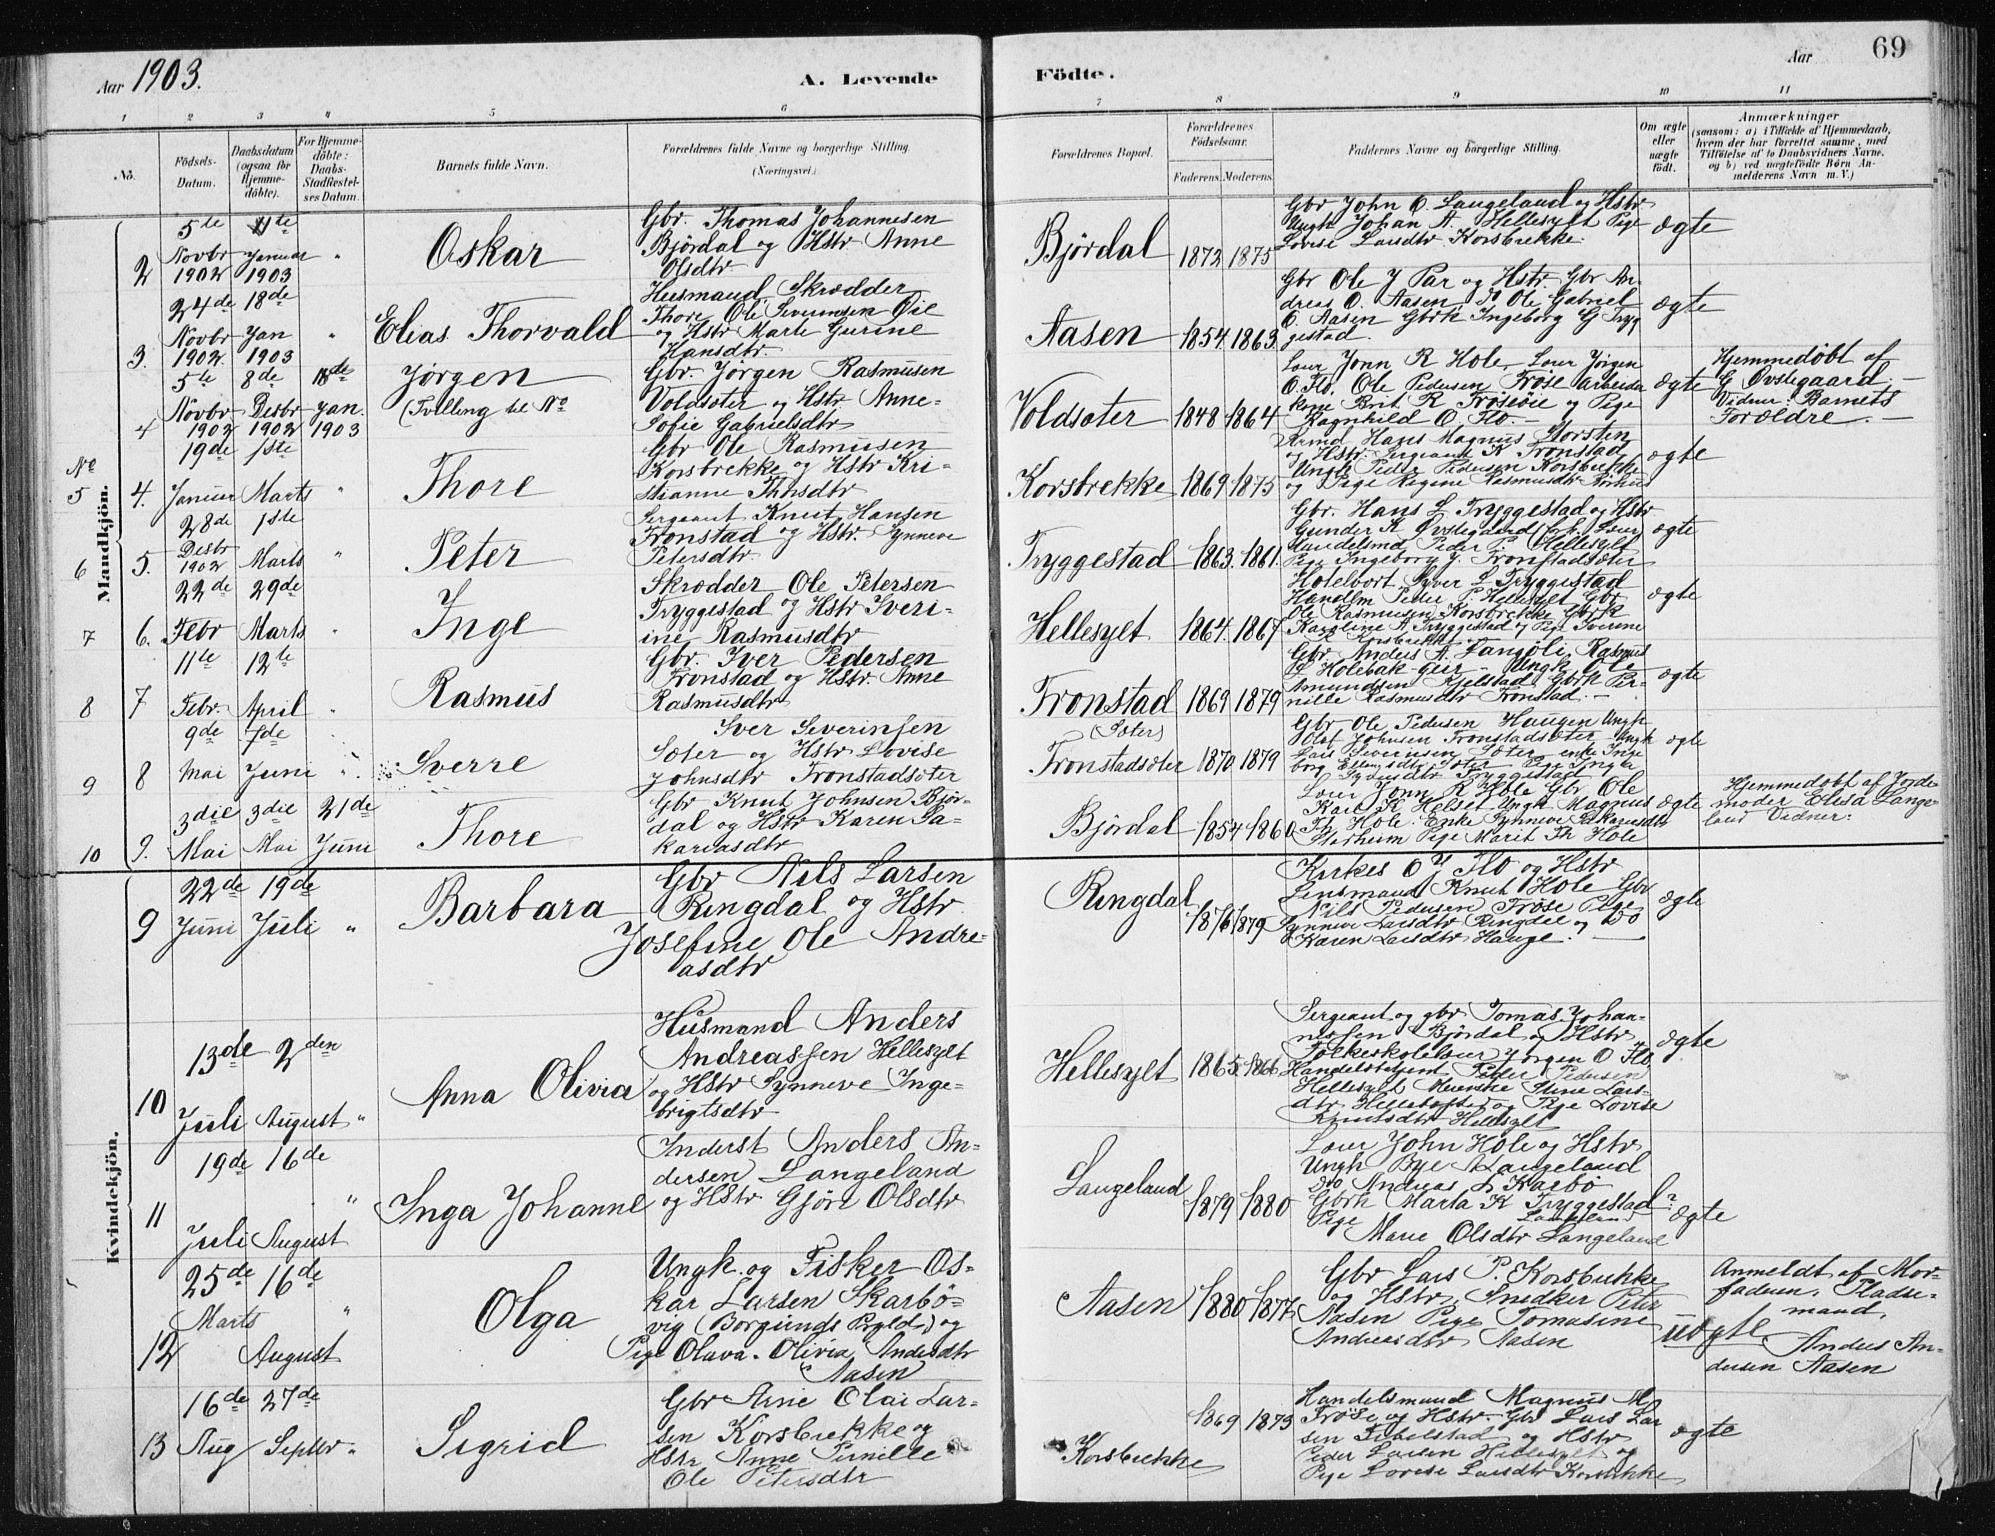 Aar 1903. A. Levende Födte. Aar 69
1 2 3 4 5 6 7 8 9 10 11
No. Födsels-Datum. Daabsdatum (ogsaa for Hjemmedöbte). For Hjemmedöbte: Daabs-Stadfæstelses Datum. Barnets fulde Navn. Forældrenes fulde Navne og borgerlige Stilling. (Næringsvei.) Forældrenes Bopæl. Forældrenes Födselsaar. Faderens. Moderens. Faddernes Navne og borgerlige Stilling. Om ægte eller uægte födt. Anmærkninger (saasom: a) i Tilfælde af Hjemmedaab, hvem der har forrettet samme, med Tilföielse af to Daabsvidners Navne, og b) ved uægtefödte Børn Anmelderens Navn m. V.)
Mandkjön.
2
5te Novbr 1902
11te Januar 1903
"
Oskar
Gbr. Thomas Johannesen
Bjørdal og Hstr Anne
Olsdtr
Bjørdal
1873 1875
Gbr John O. Langeland og Hstr
Ungk Johan A. Hellesylt Pige
Lovise Larsdtr Korsbrekke
ægte
3.
24de Novbr 1902
18de Jan 1903
"
Elias Thorvald
Husmand, Skrædder
Thore Ole Severinsen Øie
og Hstr Marte Gurine
Hansdtr.
Aasen
1854. 1863.
Gbr Ole J Par og Hstr. Gbr An-
dreas O. Aasen, Do Ole Gabriel
O. Aasen Gbrk Ingeborg G Tryg
gestad.
ægte
4
5te Novbr 1902
8de Desbr 1902
18de Jan. 1903
Jørgen
(Tvilling til No
Gbr. Jørgen Rasmusen
Voldsæter og Hstr. Anne-
Sofie Gabrielsdtr
Voldsæter
1848 1864
Lær Jonn R Hole, Lær Jørgen
O. Flo, Ole Pedersen Frøse Arbeider
kone Brit R Frøseøie og Pige
Ragnhild O Flo. —
ægte
Hjemmedøbt af
G Øvstegaard —
Vidner: Barnets
Forældre. —
No
5 4.
19de Januar
1ste Marts
"
Thore
Gbr Ole Rasmusen
Korsbrekke og Hstr Kri-
stianne Thorsdtr
Korsbrekke
1869 1875
Hans Magnus
og Hstr. Sergeant K Tronstad
Ungk Peder Pedersen Korsbrekke
og Pige Regine Rasmusdtr
ægte
6 5.
28de Desbr 1902
1ste Marts
"
Peter
Sergeant Knut Hansen
Tronstad og Hstr. Synneve
Petersdtr
Tryggestad
1863. 1861.
Gbr. Hans L Tryggestad og Hstr
Gunder K Øvstegaard Lær
Handelsmd Peder P. Hellesylt
Pige Ingeborg J. Tronstadsæter
ægte
7 6.
22de Febr
29de Marts
"
Inge
Skrædder Ole Petersen
Tryggestad og Hstr Sveri-
ine Rasmusdtr
Hellesylt
1864. 1867
Hotelvert Syver L Tryggestad
Handlm Peder P. Hellesylt Gbr
Ole Rasmusen Korsbrekke Gbrk
Karoline A. Tryggestad og Pige Sverine
R Korsbrekke
ægte
8 7
11te Febr.
12te April
"
Rasmus
Gbr. Iver Pedersen
Tronstad og Hstr. Anne
Rasmusdtr
Tronstad
1869 1879
Gbr Anders A. Langøli, Rasmus
L Holebak Gbr – Ungk Ole
Amundsen Kjelstad Gbrk Per-
nille Rasmusdtr Tronstad. —
ægte
9 8
9de Mai
7de Juni
"
Sverre
Iver Severinsen
Sæter og Hstr Lovise
Johnsdtr Tronstadsæter
(Sæter)
Tronstadsæter
1870. 1879
Gbr Ole Pedersen Haugen Ungk
Olaf Johnsen Tronstadsæter Ungk
Lars Severinsen Sæter enke Inge
borg Sæter Pige Inger
Syversdtr Tryggestad
ægte
10 9.
3die Mai
3die Mai
21de Juni
Thore
Gbr Knut Johnsen Bjør-
dal og Hstr Karen Sa-
kariasdtr
Bjørdal
1854 1860
Lær Jonn R Hole Gbr Ole
Karl K Helset Ungk Magnus
Th Hole. Enke Synneve Sakariasdtr
Storheim Pige Marit Th Hole
ægte
Hjemmedøbt af Jorde-
moder Elisa Lange-
land Vidner:
Kvindekjön.
9
22de Juni
19de Juli
"
Barbara
Gbr Nils Larsen
Ringdal og Hstr
Josefine Ole Andre-
asdtr
Ringdal
1876 1879
Kirkes O J Flo og Hstr
Lensmand Knut Hole Gbr
Nils Pedersen Frøse Pige
Synneve Larsdtr Ringdal og Do
Karen Larsdtr Hauge. —
ægte
10
13de Juli
2den August
"
Anna Olivia
Husmand Anders
Andreassen Hellesylt
og Hstr Synneve Inge-
brigtsdtr
Hellesylt
1865. 1866
Sergeant og gbr Tomas Johan-
nessen Bjørdal og Hstr
Folkeskolelærer Jørgen O Flo
Handelsbetjent Peter Pedersen
Hellesylt Meierske Stine Lars-
dtr Helletofte og Pige Lovise
Knutsdtr Hellesylt
ægte
11
19de Juli
16de August
"
Inga Johanne
Inderst Anders An-
dersen Langeland
og Hstr Gjøre Olsdtr
Langeland
1879 1880
Lær John Hole og Hstr
Ungk Bye A Langeland
Do Andreas S Karbø
Gbrk Marta K Tryggestad
Pige
Marie Olsdtr Langeland
ægte
12
25de Marts
16de August
"
Olga
Ungk. og Fisker Os-
kar Larsen Skarbø-
vig (Borgunds Prgld.) og
Pige Olava-Olivia Andersdtr
Aasen
Aasen
1880 1877
Gbr Lars P. Korsbrekke
og Hstr Snedker Peter
Aasen Pige Tomasine
Andreasdtr Aasen
uægte
Anmeldt af Mor-
faderen, Pladse-
mand,
Anders An-
dersen Aasen
13
16de Aug
27de Septbr
"
Sigrid
Gbr Arne Olai Lar-
sen Korsbrekke og
Hstr Anne Pernille
Ole Petersdtr
Korsbrekke
1869 1873
Handelsmand Magnus M
Frøse og Hstr. Gbr Lars Lar
sen Fibelstad og Hstr
Peder Larsen Hellesylt og
Pige Lovise Larsdtr Korsbrekke
ægte